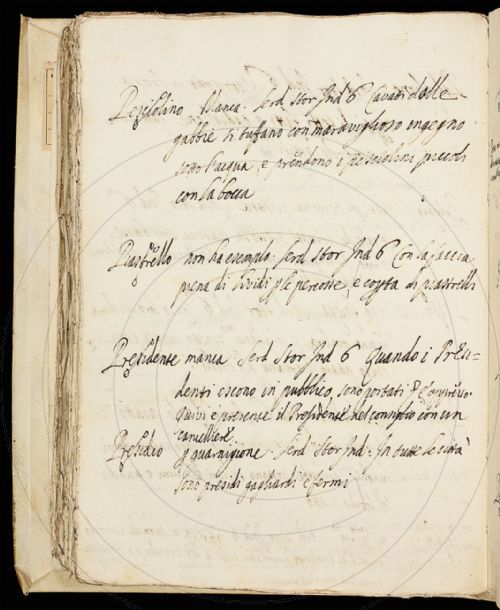 Pesciolino Manca. Serd Stor Ind 6 Cavati dalle
gabbie si tuffano con maraviglioso ingegno
sotto l'acqua, e prendono i pesciolini piccoli
con la bocca
Piastrello non ha esemplo. Serd Stor Ind 6 Con la faccia
piena di lividi p le percosse, e copta di piastrelli
Presidente manca. Serd Stor Ind 6 Quando i Presi-
denti escono in pubblico, sono portati &
Quivi è presente il Presidente del consiglio con un
cancelliere
Presidio p guarnigione. Serd Stor Ind. In tutte le città
sono presidi gagliardi e fermi